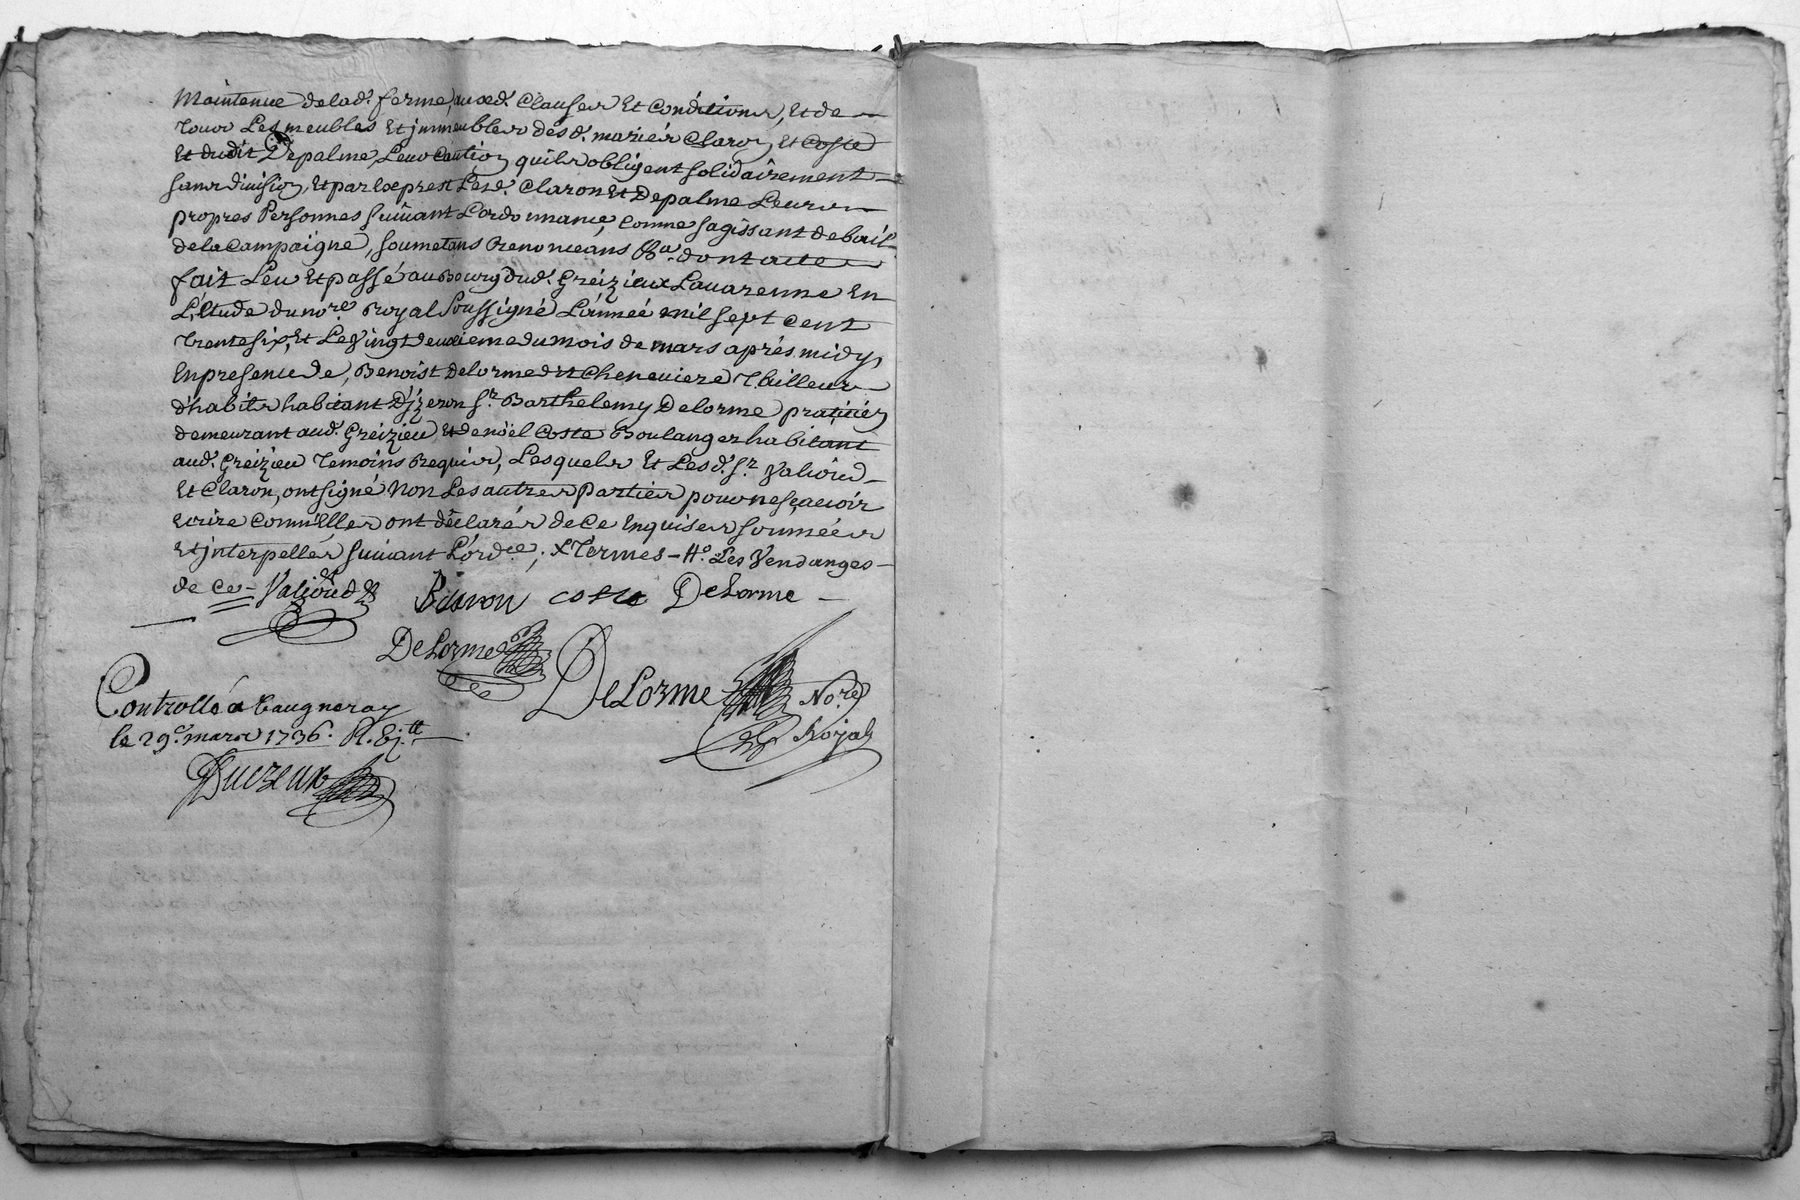 Maintenue delad. ferme, auxd. Clauses Et Conditions, Et de
Tous Les meubles Et jmmeubles desd. mariés Claron Et Coste
Et dudit Depalme, Leur Caution quils obligent solidairement
sans division, Et par Exprest Lesd. Claron Et Depalme Leurs
propres Personnes suivant Lordonnance, comme sagissant de bail
de la Campaigne, soumetans Renonceans &a. dont acte
fait Leu Et passé au Bourg dud. Greizieux Lavarenne En
L'Etude du nore. Royal soussigné L'année mil sept cent
Trente six, Et Le vingt deuxieme du mois de mars aprés midy,
En presence de, Benoist Delorme dit Cheneviere Tailleur
d'habits habitant D'jzeron sr. Barthelemy Delorme praticien
demeurant aud. Greizieu Et de noël Coste Boulanger habitant
aud. Greizieu Temoins Requis, Lesquels Et Lesd. sr. Valioud
Et Claron, ont signé Non Les autres Parties pour ne sçavoir
Ecrire Comm'Elles ont déclarés de Ce Enquises sommées
Et jnterpellés suivant L'ordce; x Termes - Ho. Les Vendanges
de Ce = Valioud coste DeLorme
DeLorme DeLorme Nore.
Royal
Controllé a Vaugneray
le 29e. mars 1736.
Ducreux